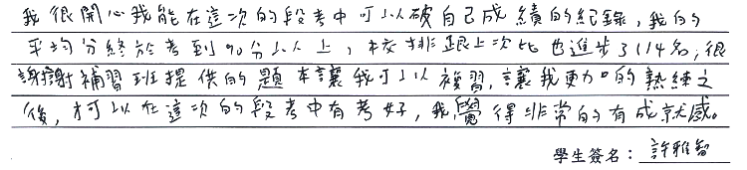 我很開心我能在這次的段考中可以破自己成績的紀錄，我的
平均分終於考到90分以上，校排跟上次比也進步了114名，很
謝謝補習班提供的題本讓我可以複習，讓我更加的熟練之
後，才可以在這次的段考中有考好，我覺得非常的有成就感。
學生簽名：許雅智